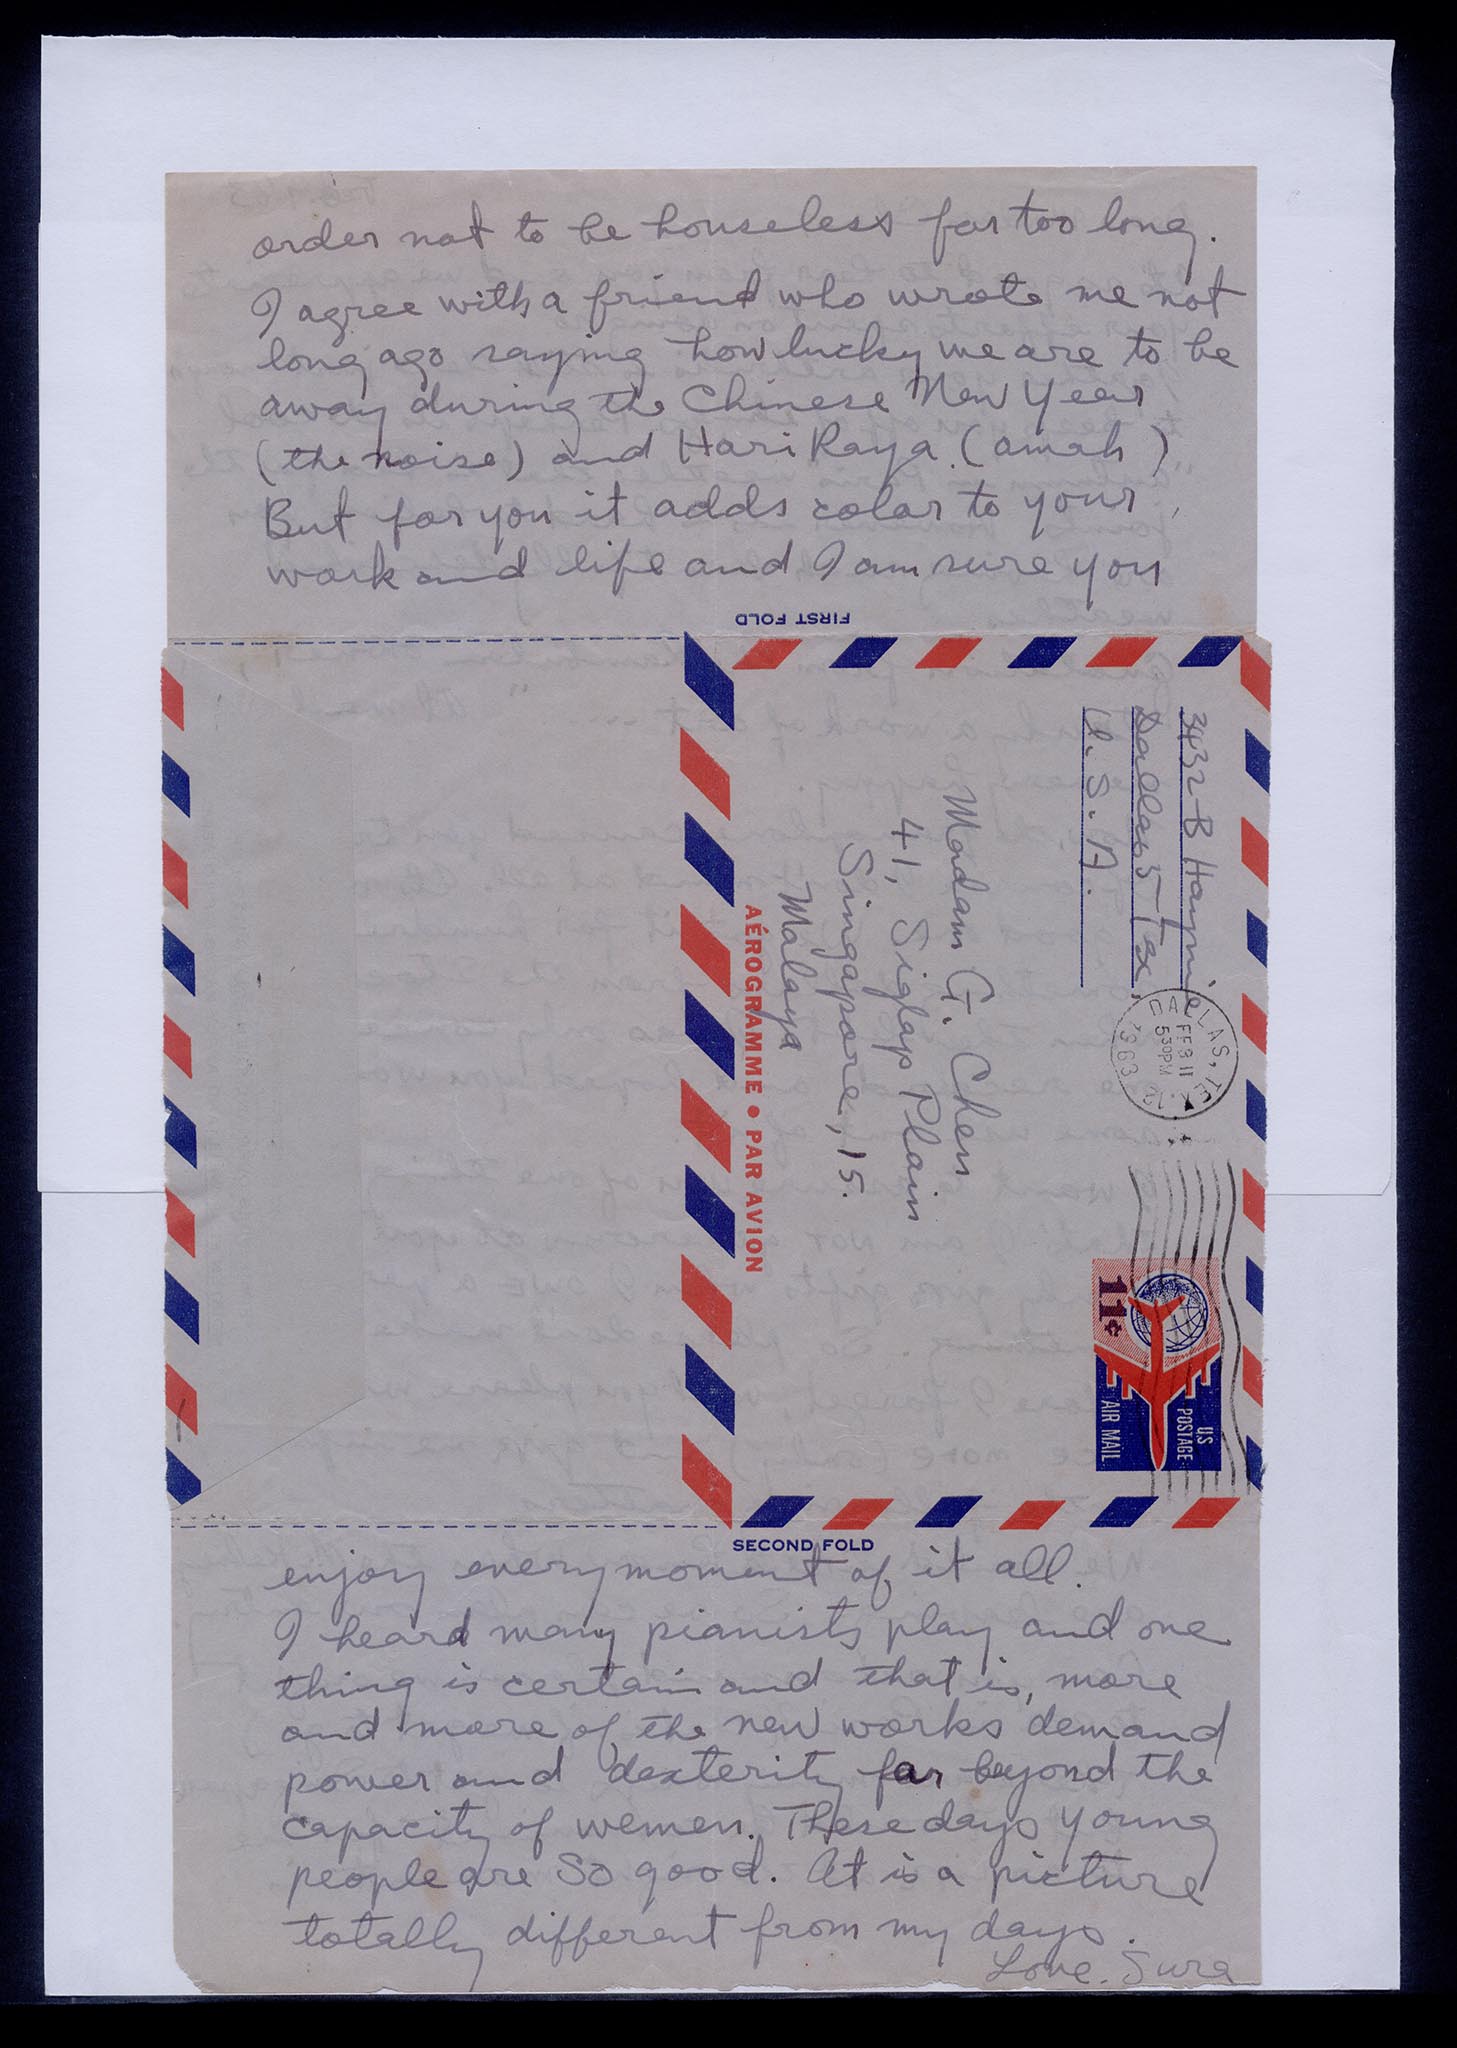 order not to be houseless for too long.
I agree with a friend who wrote me not
long ago saying how lucky we are to be
away during the Chinese New Year
(the noise) and Hari Raya. (amah)
But for you it adds color to your
work and life and I am sure you
FIRST FOLD
3432-B Haynie
Dallas 5 Tex.
U. S. A.
DALLAS, TEX.
FEB 11
5 30 PM
1963
11¢
US
POSTAGE
AIR MAIL
Madam G. Chen
41, Siglap Plain
Singapore, 15.
Malaya
AÉROGRAMME • PAR AVION
SECOND FOLD
enjoy every moment of it all.
I heard many pianists play and one
thing is certain and that is, more
and more of the new works demand
power and dexterity far beyond the
capacity of wemen. These days young
people are so good. It is a picture
totally different from my days.
Love. Sura